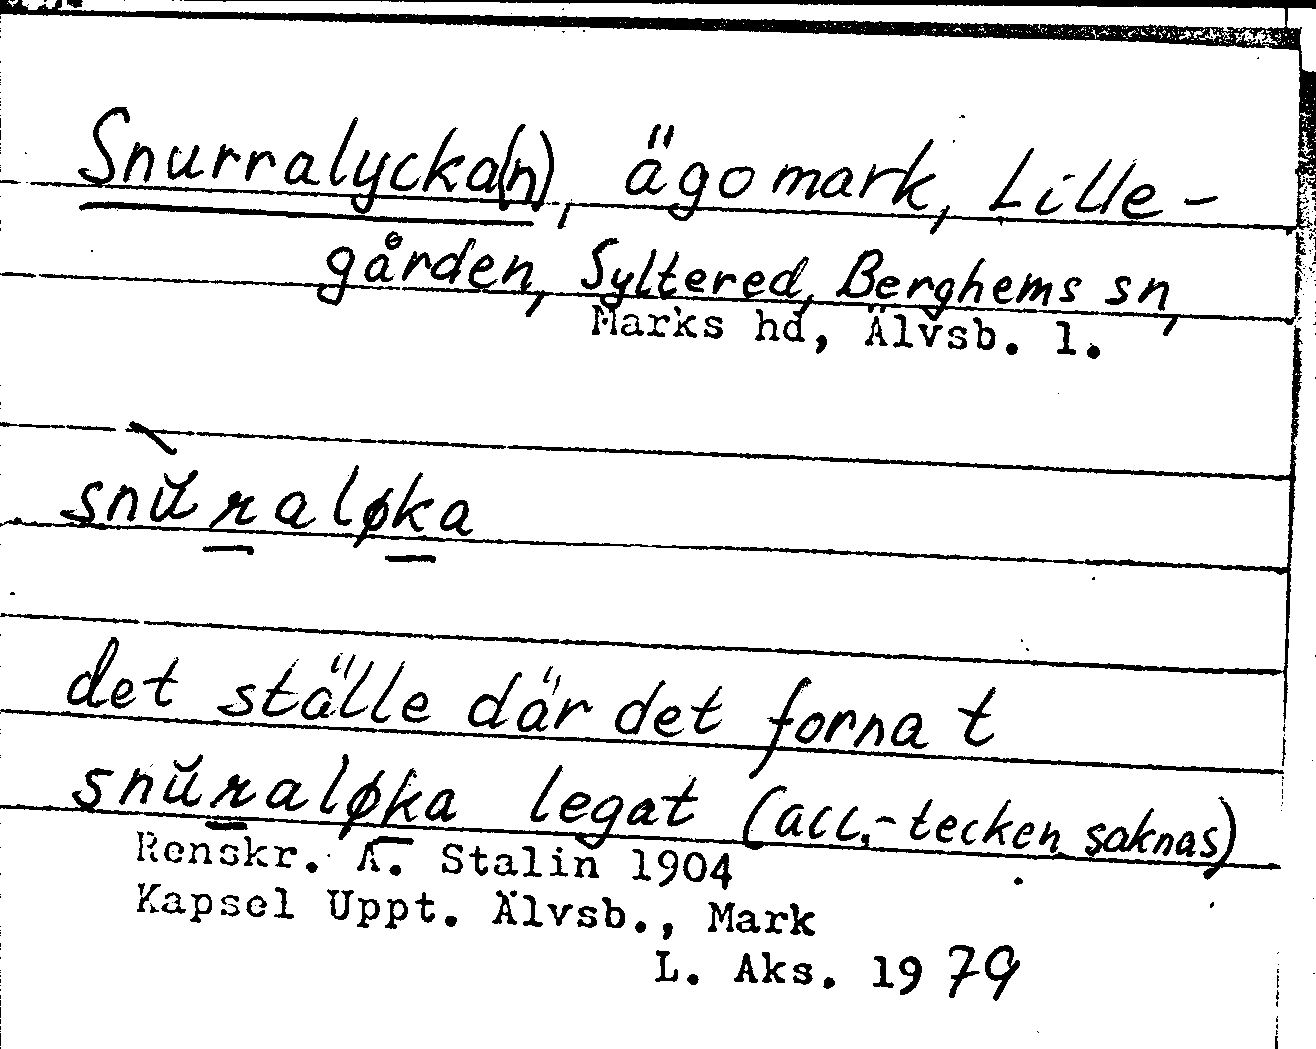 Snurralycka(n), ägomark, Lille-
gården, Syltered, Berghems sn,
Marks hd, Älvsb. l.
snŭraløka
det ställe där det forna t
snŭraløka legat (acc.-tecken saknas)
Renskr. A. Stalin 1904
Kapsel Uppt. Älvsb., Mark
L. Aks. 1979